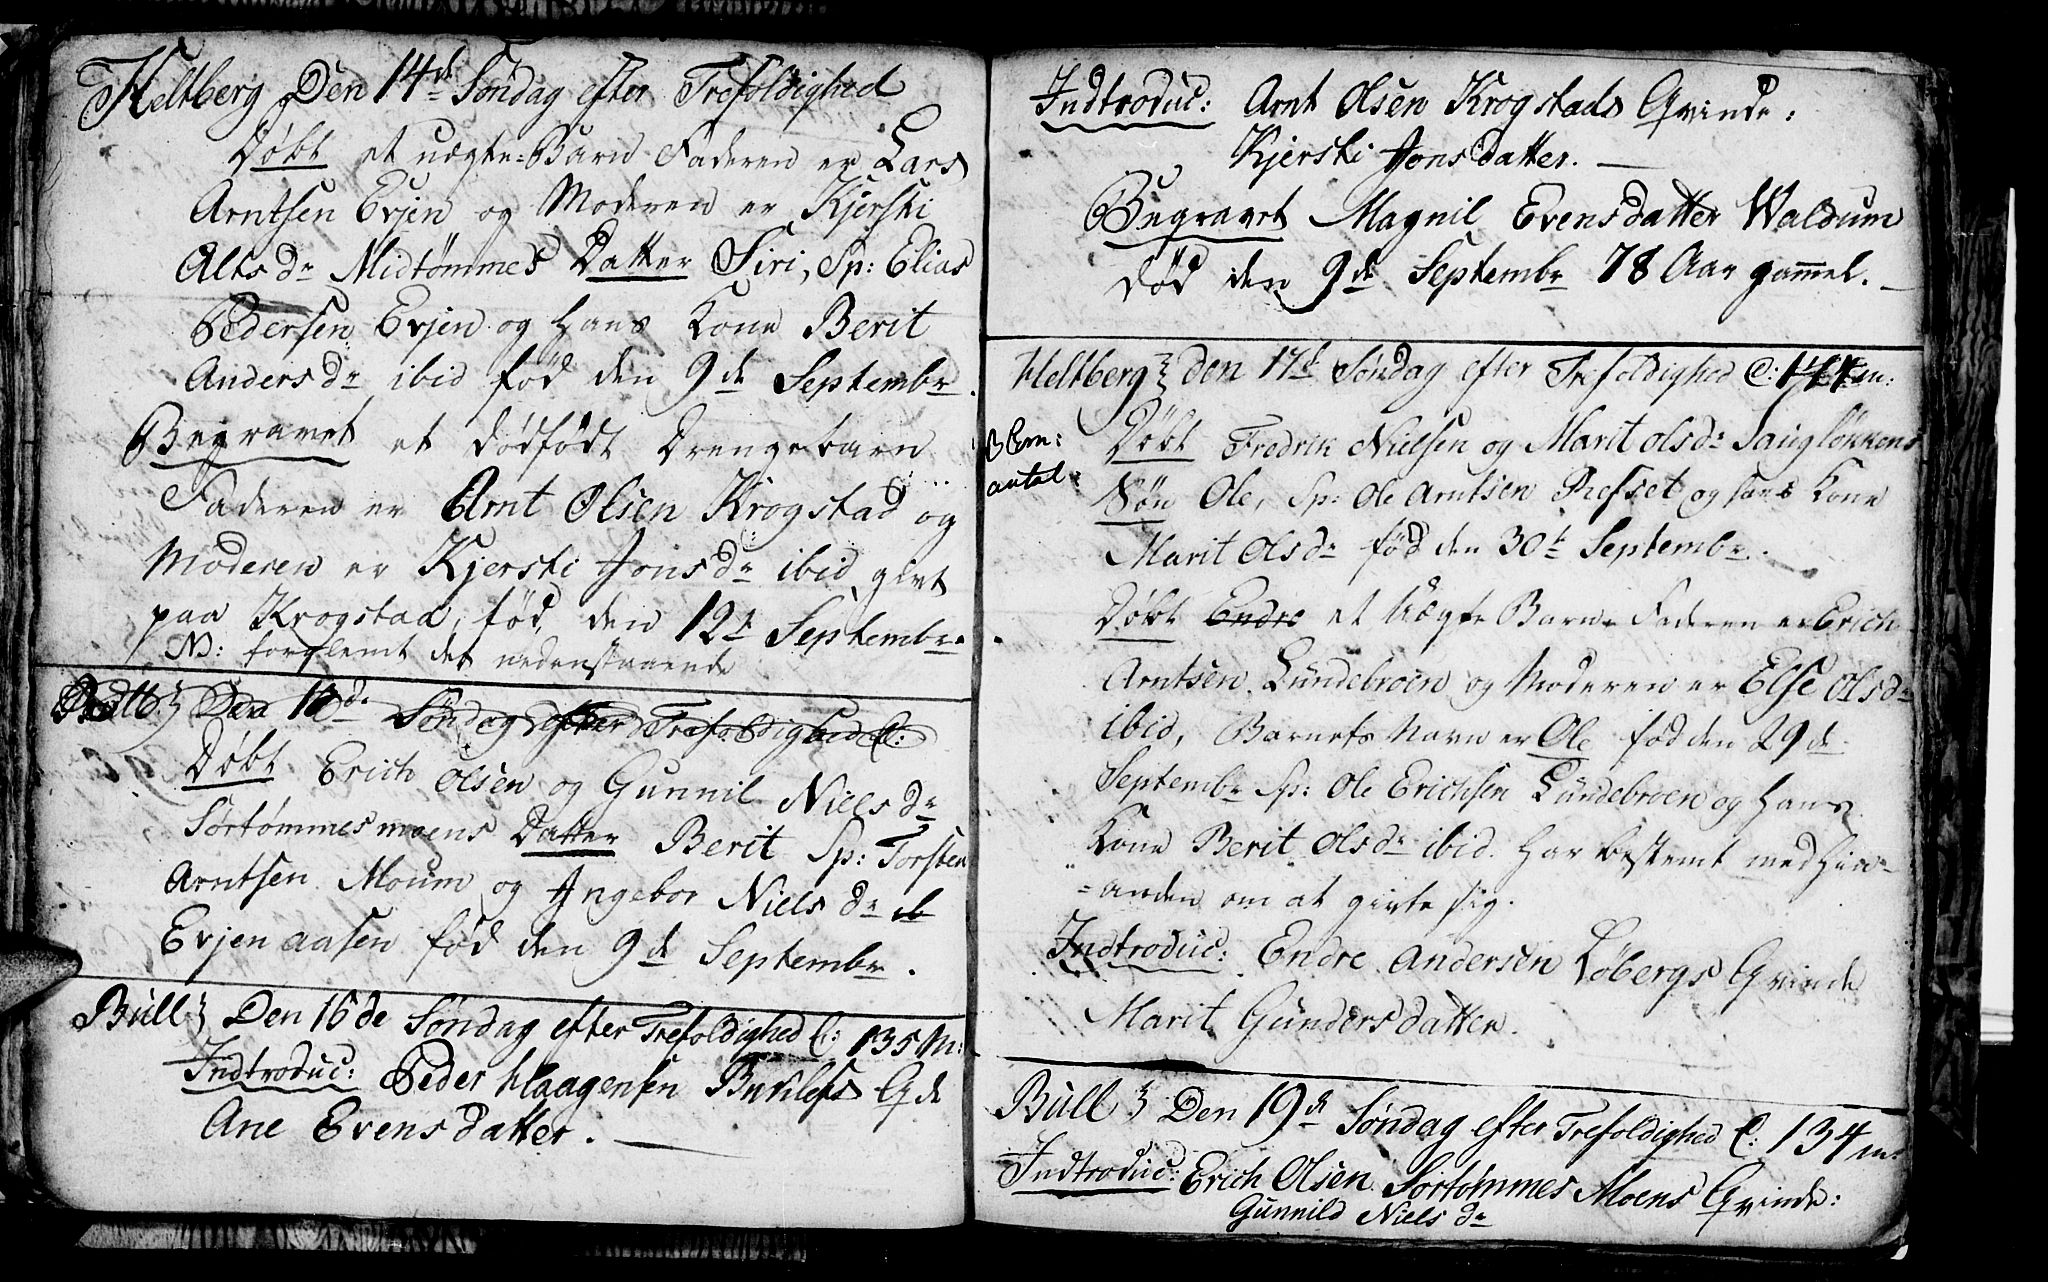 Heltberg Den 14de Søndag efter Trefoldighed
Døbt et uægte-Barn Faderen er Lars
Arntsen Evjen og Moderen er Kjersti
Alfsdr Midtømmes Datter Siri, Sp: Elias
Pedersen Evjen og Hans Kone Berit
Andersdr ibid fød den 9de Septembr.
Begravet et dødfødt Drengebarn
Faderen er Arnt Olsen Krogstad og
Moderen er Kjersti Jonsdr ibid givt
paa Krogstad, fød den 12te Septembr.
N: forglemt det nedenstaaende
Den Søndag efter Trefoldighed C:
Døbt Erich Olsen og Gunnil Nielsdr
Sørtømmesmoens Datter Berit Sp: Torsten
Arntsen Moum og Ingebor Nielsdr
Evjenaasen fød den 9de Septembr.
Bull Den 16de Søndag efter Trefoldighed C: 135 M:
Indtroduc: Peder Haagensen G de
Ane Evensdatter.
Indtroduc: Arnt Olsen Krogstads Qvinde:
Kjersti Jonsdatter.
Begravet Magnil Evensdatter Waldum
død den 9de Septembr 78 Aar gammel.
Heltberg den 17de Søndag efter Trefoldighed C: m:
antal:
Døbt Fredrik Nielsen og Marit Olsdr Saugløkkens
Søn Ole, Sp: Ole Arntsen Refset og hans Kone
Marit Olsdr fød den 30te Septembr.
Døbt Endre et Uægte Barn Faderen er Erich
Arntsen Lundebroen og Moderen er Else Olsdr
ibid, Barnets Navn er Ole fød den 29de
Septembr Sp: Ole Erichsen Lundebroen og Hans
Kone Berit Olsdr ibid. Har bestemt med hin-
=anden om at givte sig.
Indtroduc: Endre Andersen Løbergs Qvinde
Marit Gundersdatter.
Bull Den 19de Søndag efter Trefoldighed C: 134 m:
Indtroduc: Erich Olsen Sørtømmes Moens Qvinde:
Gunnild Nielsdr